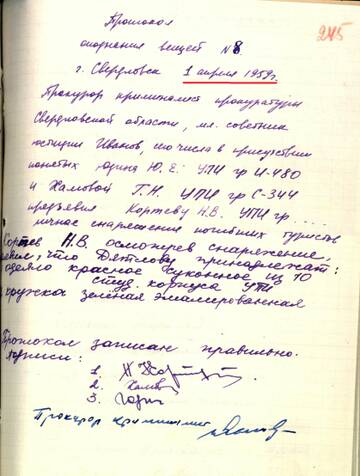 245
Протокол
опознания вещей №8
г. Свердловск 1 апреля 1959г.
Прокурор криминалист прокуратуры
Свердловской области, мл. советник
юстиции Иванов, сего числа в присутствии
понятых Юдина Ю. Е. УПИ гр И-480
и Хамовой Г.Н. УПИ гр С-344
предъявил Коржеву Н.В. УПИ гр ....
личное снаряжение погибших туристов
Н.В. осмотрев снаряжение,
что Дятлову принадлежат:
одеяло красное суконное из 10
студ. корпуса УПИ
кружка зеленая эмалированная
Протокол записан правильно.
1.
2. Хамова
3.
Прокурор криминалист